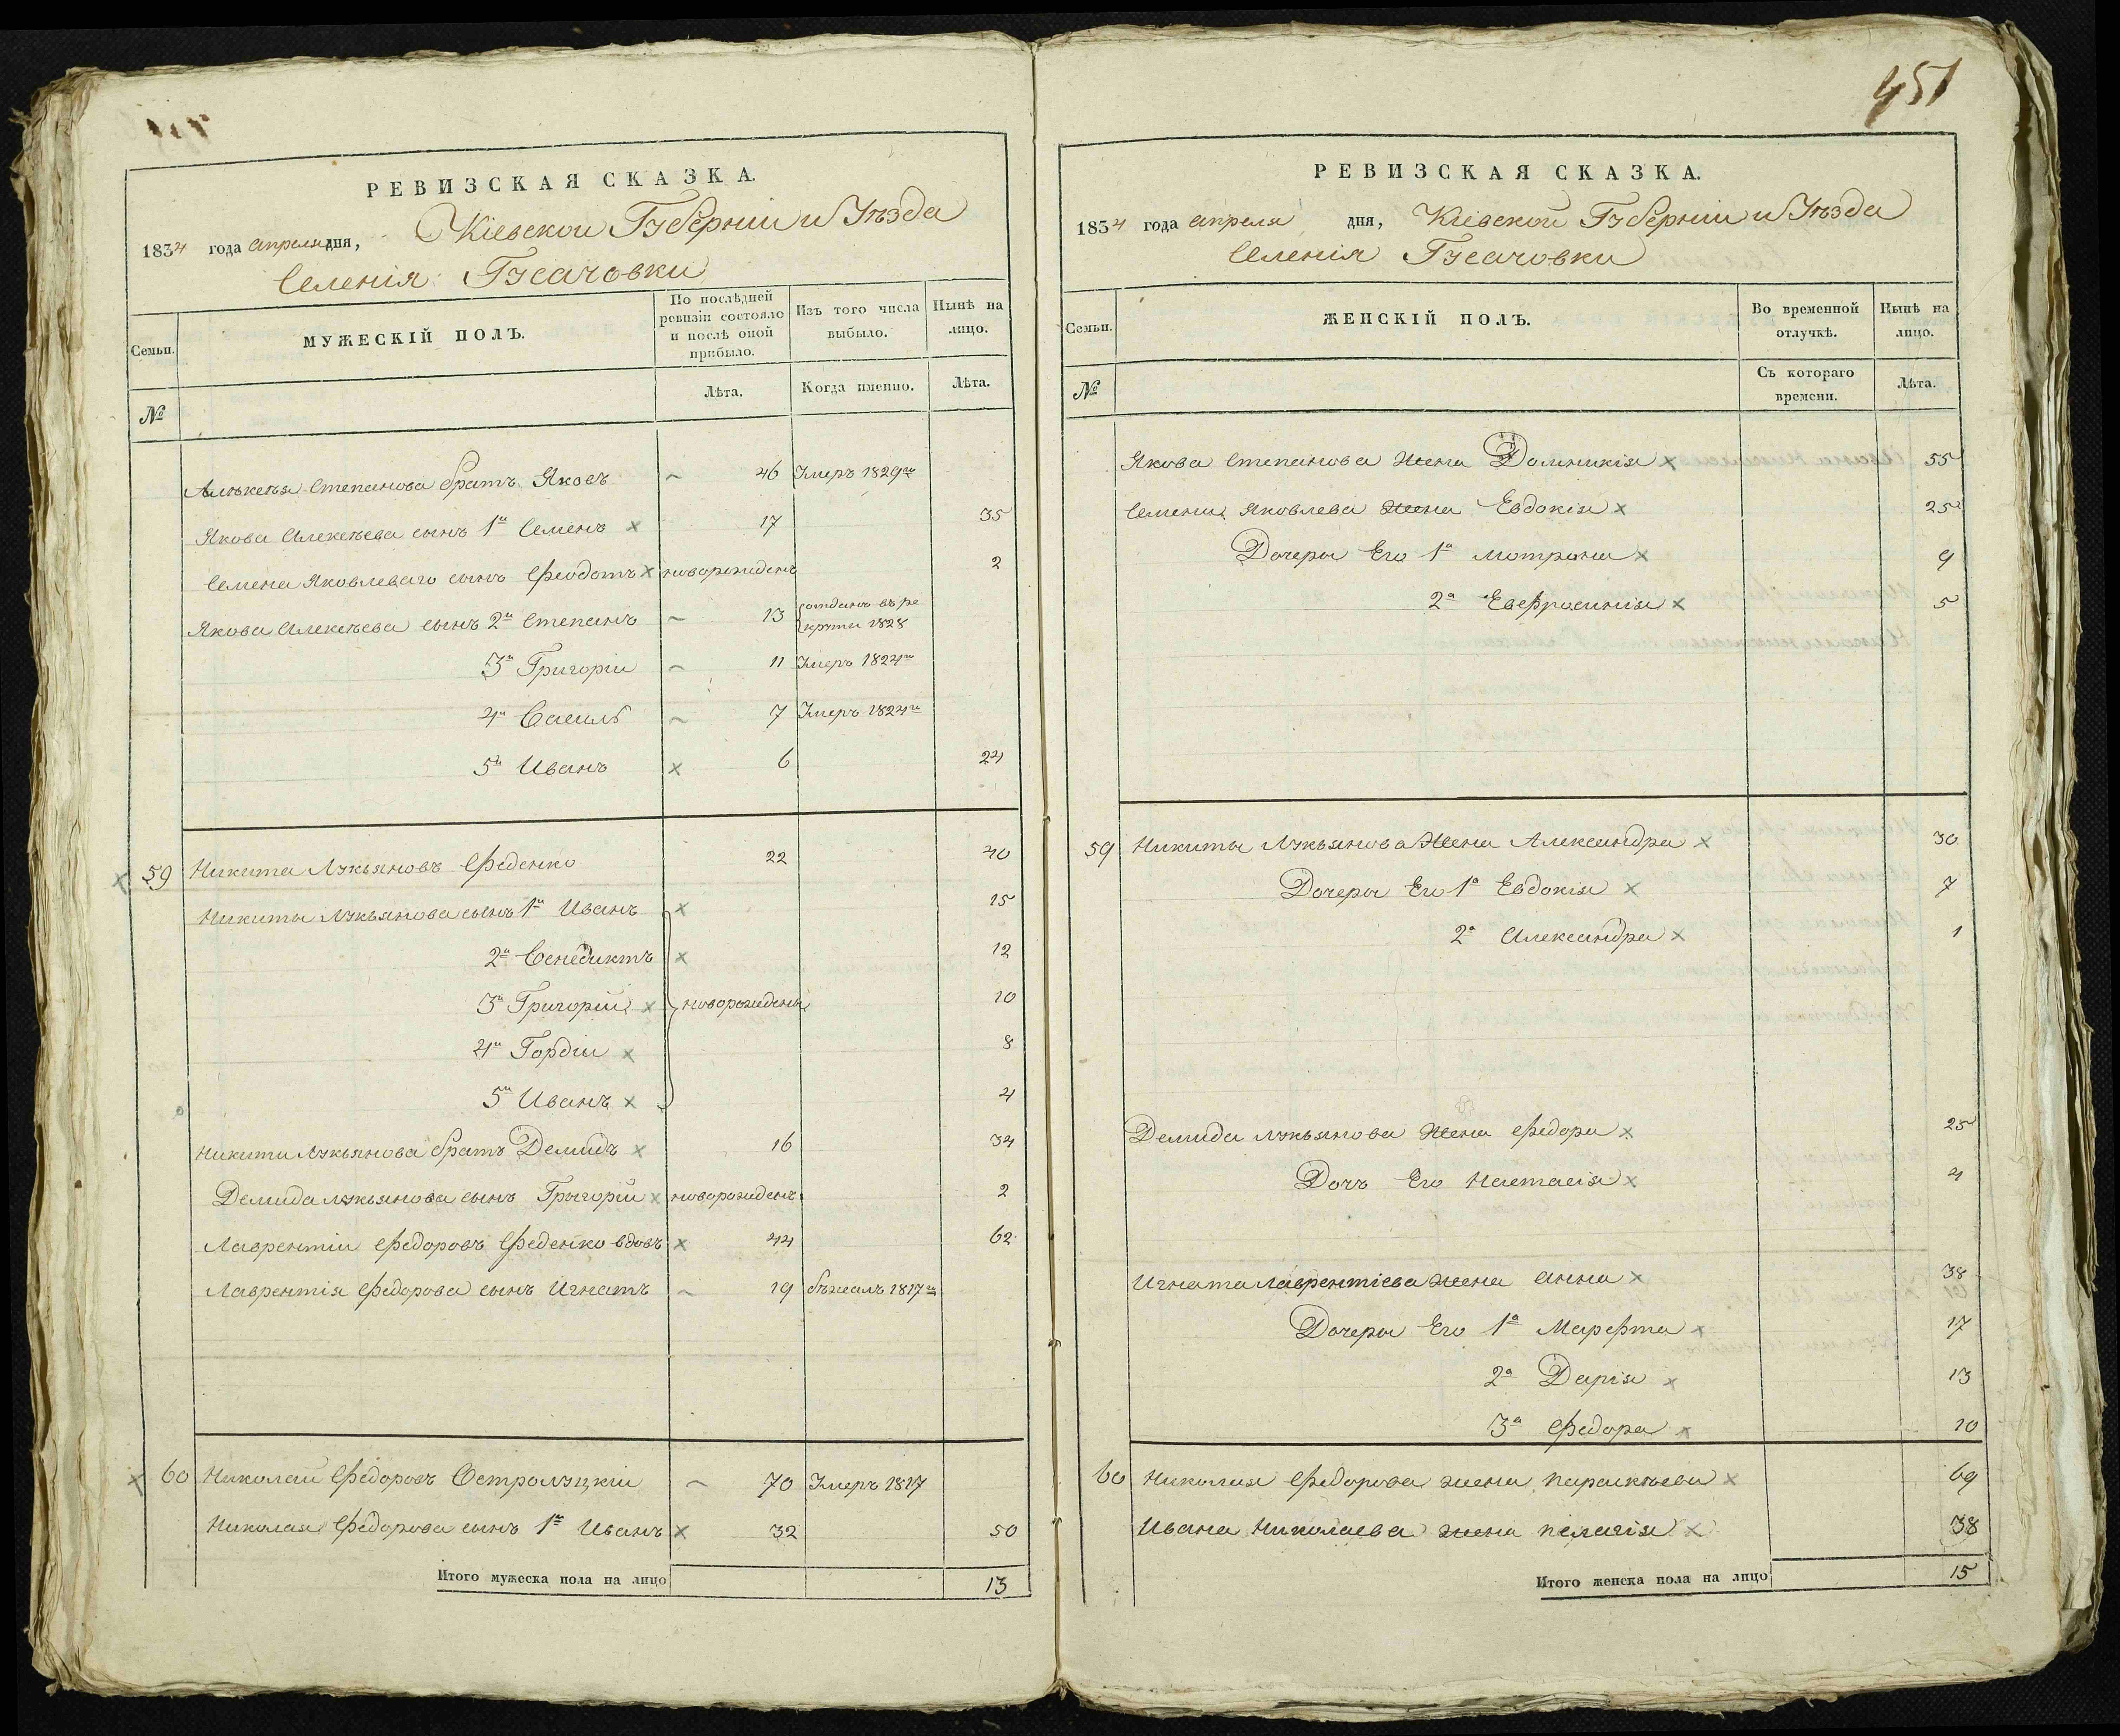 РЕВИЗСКАЯ СКАЗКА.
1834 года Апреля дня, Кіевской Губерніи и Уѣзда
Селенія Гусачовки
Семьи.
МУЖЕСКІЙ ПОЛЪ.
По послѣдней ревизіи состояло и послѣ оной прибыло.
Изъ того числа выбыло.
Нынѣ на лицо.
№
Лѣта.
Когда именно.
Лѣта.
Алексѣя Степанова братъ Яковъ 46 Умеръ 1829го
Якова Алексѣева сынъ 1й Семенъ × 17 35
Семена Яковлеваго сынъ Феодотъ × новорожденъ 2
Якова Алексѣева сынъ 2й Степанъ 13 отданъ въ ре
круты 1828
3й Григоріи 11 Умеръ 1824го
4й Василь 7 Умеръ 1824го
5й Иванъ × 6 24
× 59 Никита Лукьяновъ Феденко 22 40
Никиты Лукьянова сынъ 1й Иванъ × 15
2й Венедиктъ × 12
3й Григорій × новорождены 10
4й Гордіи × 8
5й Иванъ × 4
Никити Лукьянова братъ Демидъ × 16 34
Демида Лукьянова сынъ Григоріи × новорожденъ 2
Лаврентіи Федоровъ Феденко вдовъ × 44 62
Лаврентія Федорова сынъ Игнатъ 19 бѣжалъ 1817го
× 60 Николай Федоровъ Остролуцкіи 70 Умеръ 1817
Николая Федорова сынъ 1й Иванъ × 32 50
Итого мужеска пола на лицо 13
451
РЕВИЗСКАЯ СКАЗКА.
1834 года апреля дня, Кіевской Губерніи и Уѣзда
Селенія Гусачовки
Семьи.
ЖЕНСКІЙ ПОЛЪ.
Во временной отлучкѣ.
Нынѣ на лицо.
№
Съ котораго времени.
Лѣта.
Якова Степанова жена Домникія × 55
Семена Яковлева жена Евдокія × 25
Дочеры Его 1а Мотрона × 9
2а Евфросинія × 5
59 Никиты Лукьянова Жена Александра × 30
Дочеры Его 1а Евдокія × 7
2а Александра × 1
Демида Лукьянова жена Федора × 25
Дочъ Его Настасія × 4
Игната Лаврентіева жена анна × 38
Дочеры Его 1а Марфта × 17
2а Дарія × 13
3а Федора × 10
60 Николая Федорова жена параскѣева × 69
Ивана Николаева жена пелагія × 38
Итого женска пола на лицо 15